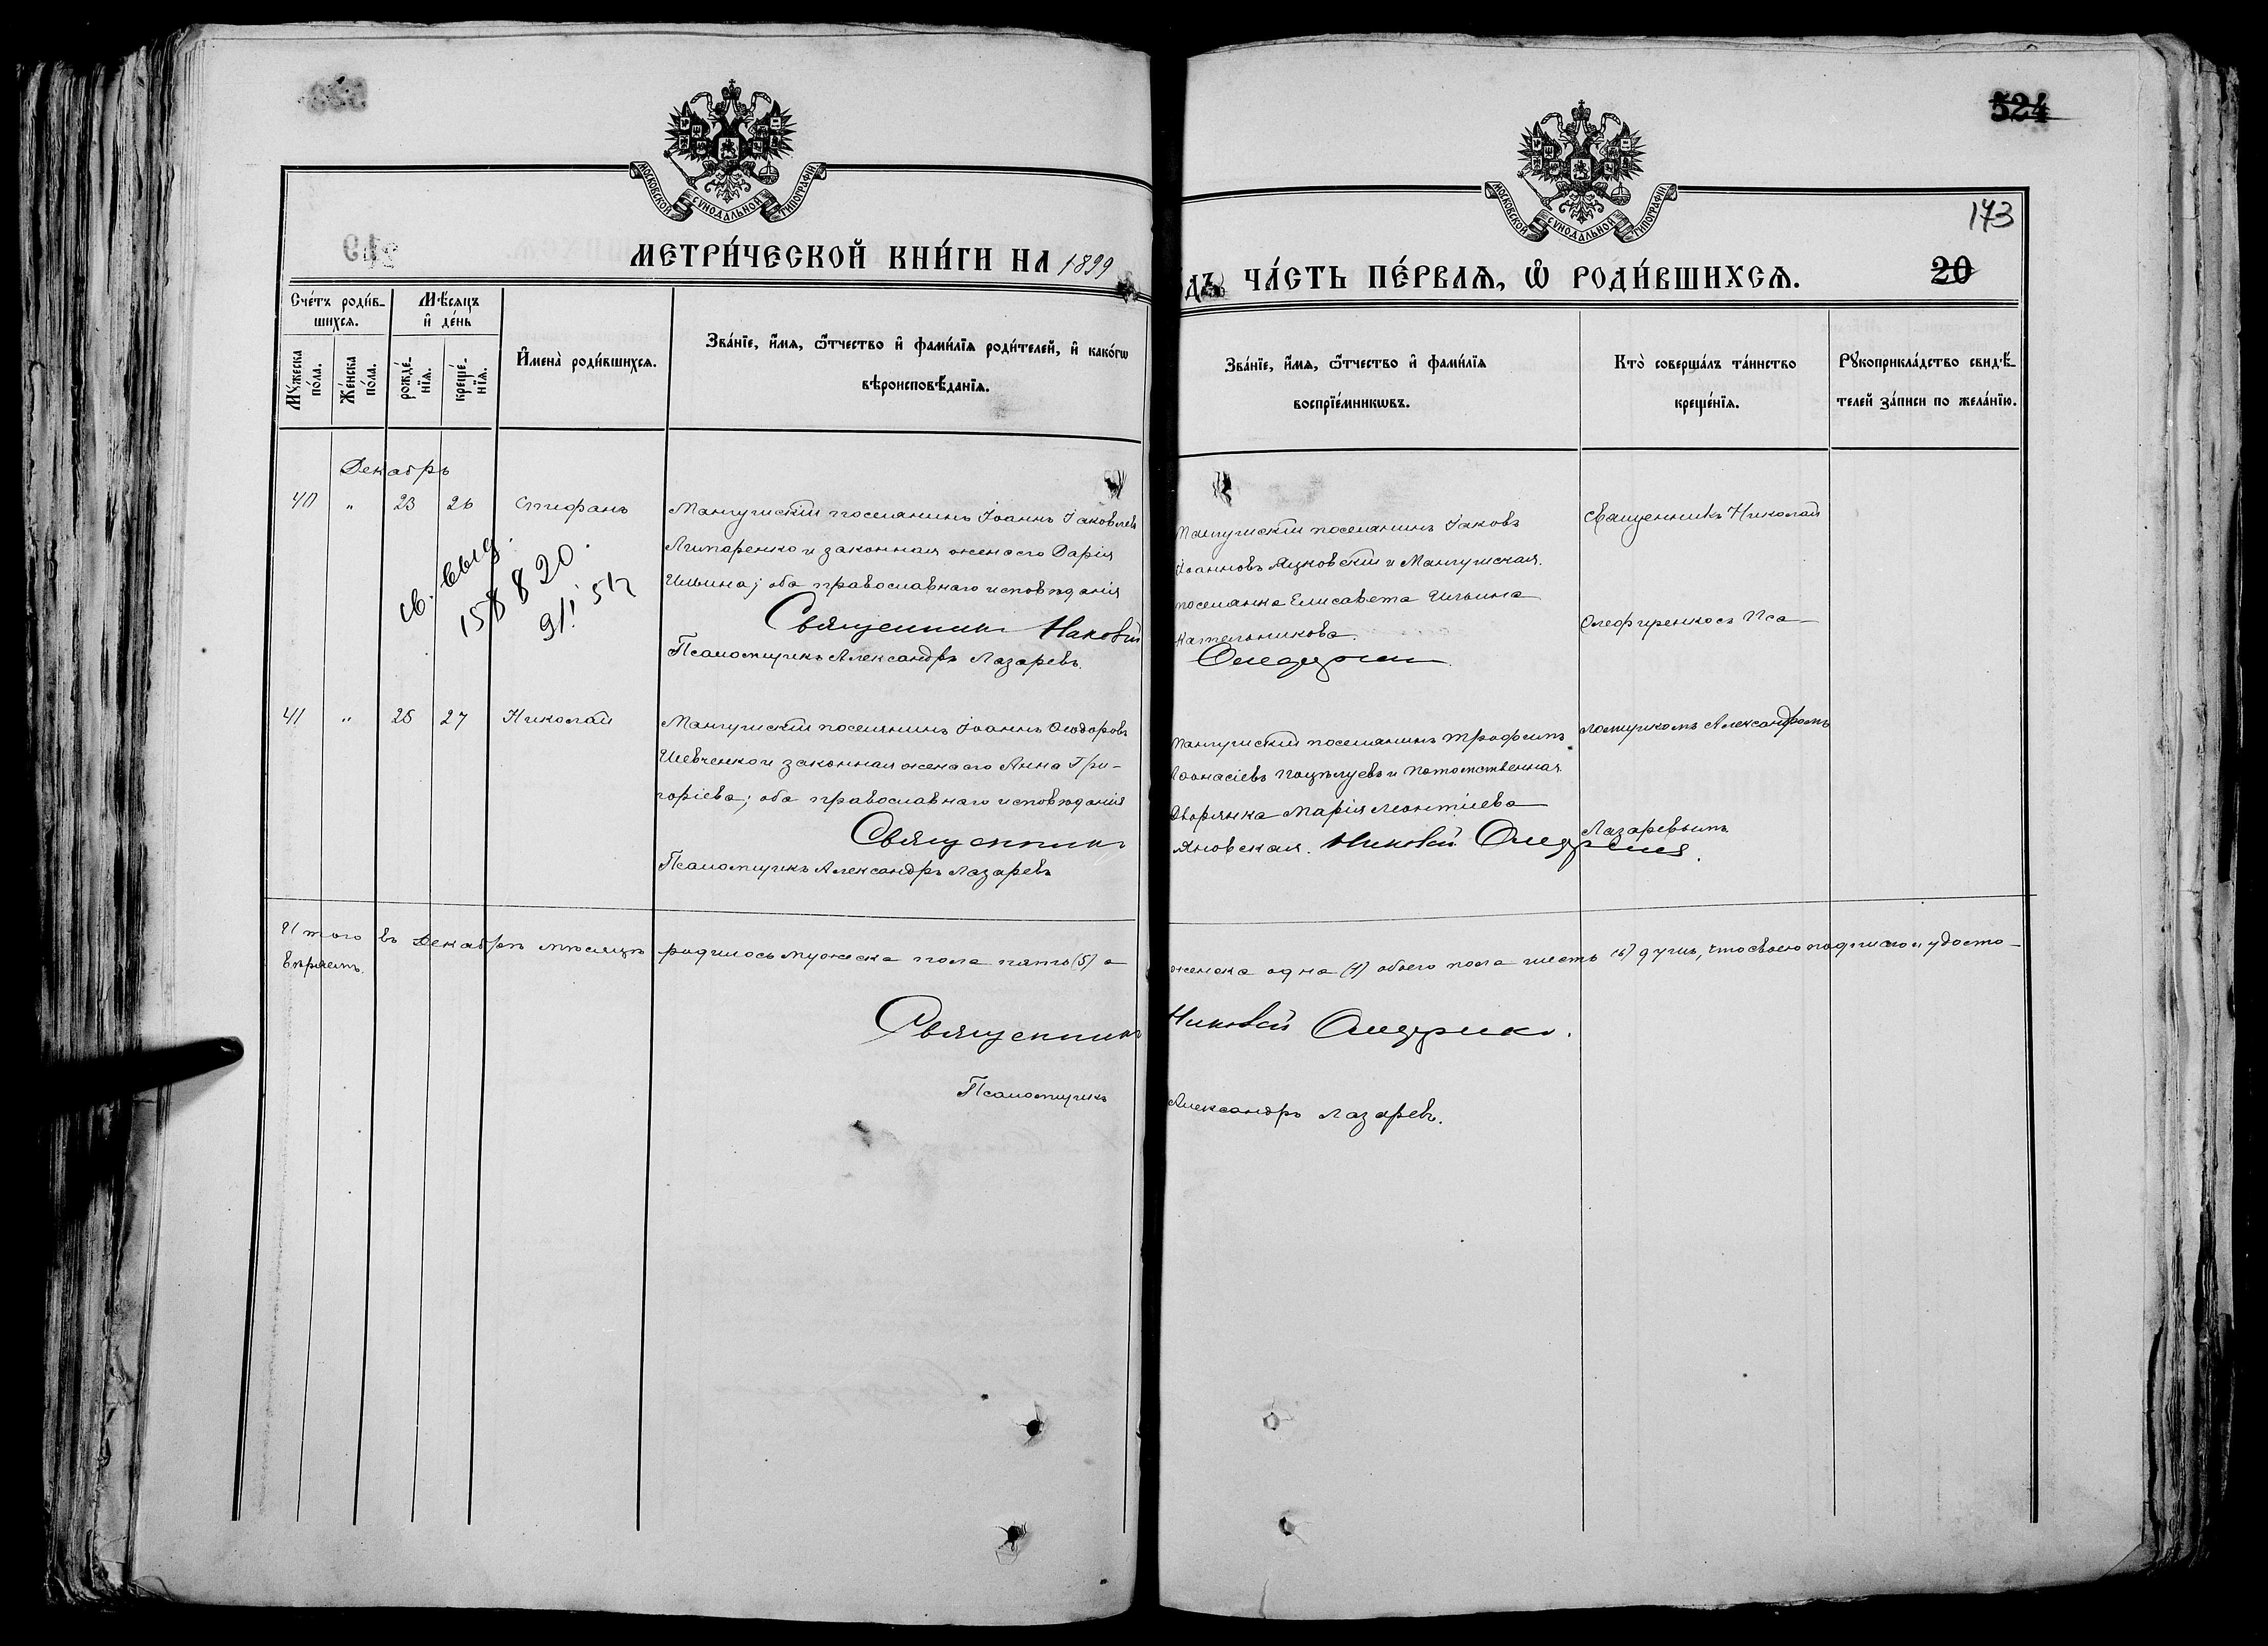 524
173
МОСКОВСКОЙ СУНОДАЛЬНОЙ ТИПОГРАФІИ
МОСКОВСКОЙ СУНОДАЛЬНОЙ ТИПОГРАФІИ
МЕТРИ́ЧЕСКОЙ КНИ́ГИ НА 1899
ДЪ ЧА́СТЬ ПЕ́РВАѦ, Ѿ РОДИ́ВШИХСѦ.
20
Сче́тъ роди́в-
шихсѧ.
Мѣ́сѧцъ
и҆ де́нь
Мꙋ́жеска
по́ла.
Же́нска
по́ла.
рожде́-
нїѧ.
креще́-
нїѧ.
И҆мена̀ роди́вшихсѧ.
Зва́нїе, и҆́мѧ, ѻ҆́тчество и҆ фами́лїѧ роди́телей, и҆ како́гѡ
вѣроисповѣ́данїѧ.
Зва́нїе, и҆́мѧ, ѻ҆́тчество и҆ фами́лїѧ
воспрїе́мникѡвъ.
Кто̀ соверша́лъ та́инство
креще́нїѧ.
Рꙋкоприкла́дство свидѣ́-
телей за́писи по жела́нїю.
Декабрь
40 " 23 26 Стефанъ
Мангушскій поселянинъ Іоаннъ Іаковлевъ
Липаренко и законная жена его Дарія
Ильина; оба православнаго исповѣданія
Священникъ Николай
Псаломщикъ Александръ Лазаревъ.
св. выд.
158820.
Мангушскій поселянинъ Іаковъ
Іоанновъ Яцковскій и Мангушская
поселянка Елисавета Ильина
Кательникова.
Олефиренко
Священникъ Николай
Олефиренко съ Пса-
41 " 25 27 Николай
Мангушскій поселянинъ Іоаннъ Ѳеодоровъ
Шевченко и законная жена его Анна Гри-
горіева; оба православнаго исповѣданія
Священникъ
Псаломщикъ Александръ Лазаревъ
Мангушскій поселянинъ Трофимъ
Аѳанасіевъ Поцѣлуевъ и потомственная
Дворянка Марія Леонтіева
Яновская. Николай Олефиренко.
ломщикомъ Александромъ
Лазаревымъ
Итого въ Декабрѣ мѣсяцѣ родилось мужеска пола пять (5) а женска одна (1) обоего пола шесть (6) душъ, что своею подписью и удосто-
вѣряемъ.
Священникъ Николай Олефиренко.
Псаломщикъ Александръ Лазаревъ.